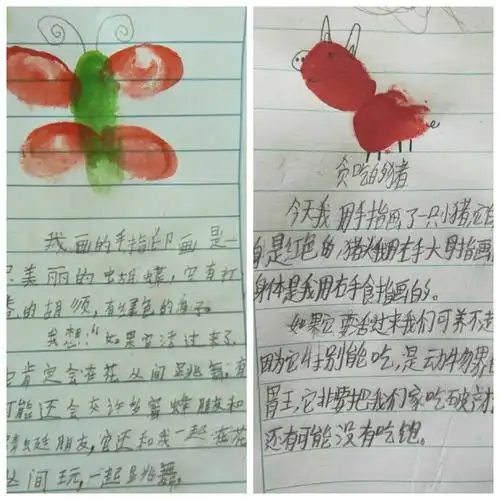 我画的手指印画是一
只美丽的出胡蝶，它有打
卷的胡须，有绿色的身子。
我想：“如果它活过来了，
它肯定会在花丛间跳舞，有
可能还会交许多蜜蜂朋友和
蜻蜓朋友，它还和我一起在花
丛间玩，一起跳舞。
贪吃的猪
今天我用手指画了一只小猪，它
自是红色的，猪头我用左手大母指画
身体是我用右手食指画的。
如果它要活过来我们可养不走
因为它特别能吃，是动物界
胃王，它非要把我们家吃破产
还有可能没有吃饱。